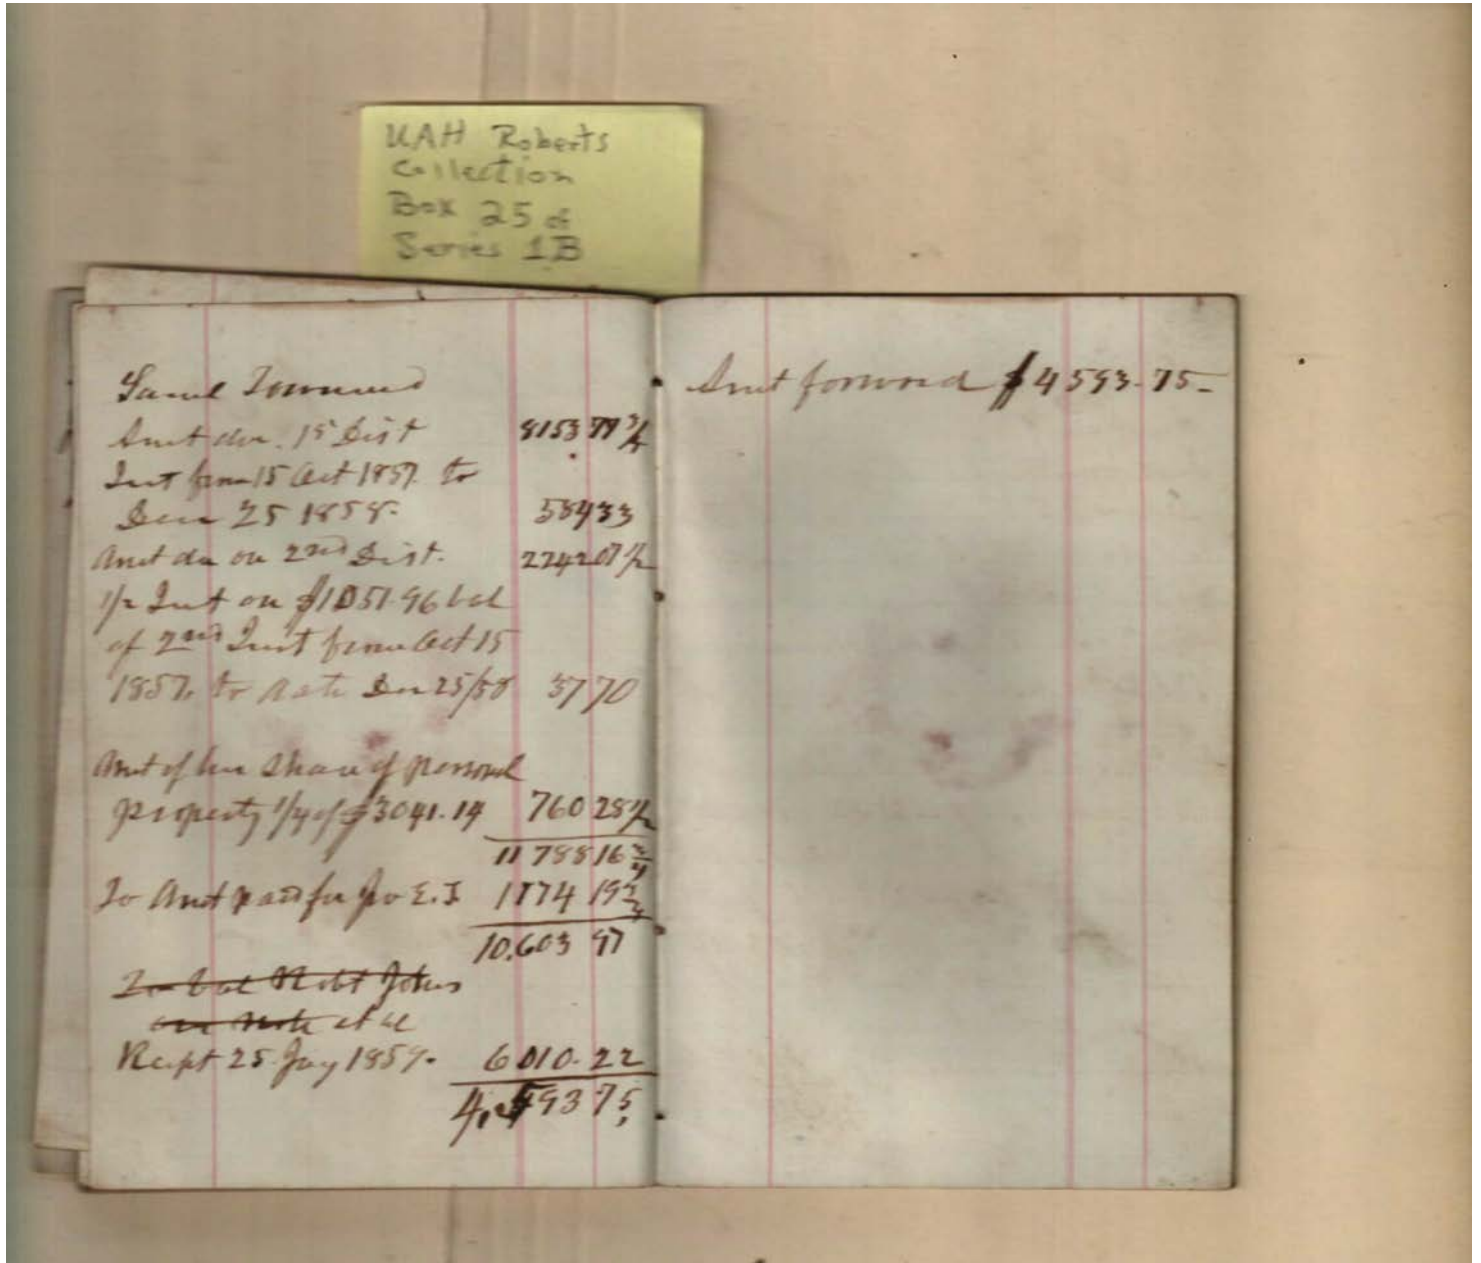 UAH Roberts
Collection
Box 25 of
Series 1B
Saml Townsend
Amt due 1st Dist 8153 77 3/4
Int from 15 Oct 1857 to
Dec 25 1858. 584 33
Amt du on 2nd Dist. 2242 07 1/2
1/2 Int on $1051.96 bal
of 2nd Inst from Oct 15
1857 to date Dec 25/58 37 70
Amt of her share of personal
property 1/4 of $3041.14 760 28 1/2
11788 16 3/4
To Amt paid for Jo E. T 1174 19 3/4
10.603 97
To bal Robt Johns
our note at al
Recpt 25 Jay 1859. 6010.22
4,593 75
Amt forword $4593.75-